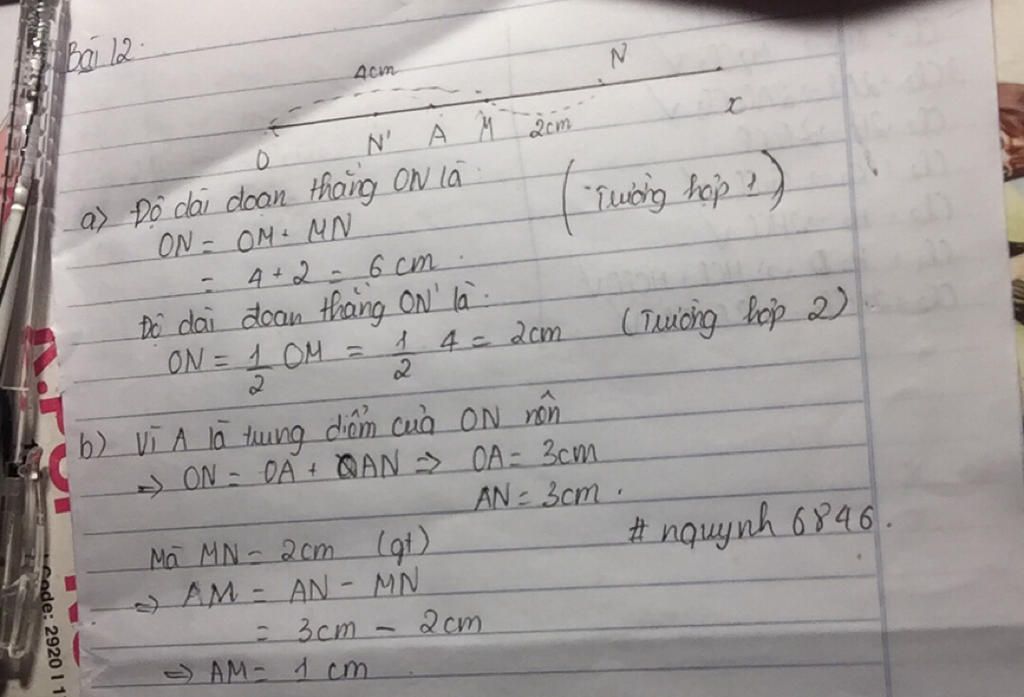 Bài 12.
4cm
N
O N' A M 2cm x
a) Độ dài đoạn thẳng ON là: (Trường hợp 1)
ON = OM + MN
= 4 + 2 = 6 cm.
Độ dài đoạn thẳng ON' là:
ON = 1/2 OM = 1/2 4 = 2cm (Trường hợp 2)
b) Vì A là trung điểm của ON nên
=> ON = OA + AN => OA = 3cm
AN = 3cm.
# nquynh 6846.
Mà MN = 2cm (gt)
=> AM = AN - MN
= 3cm - 2cm
=> AM = 1 cm
Code: 2920 1 1